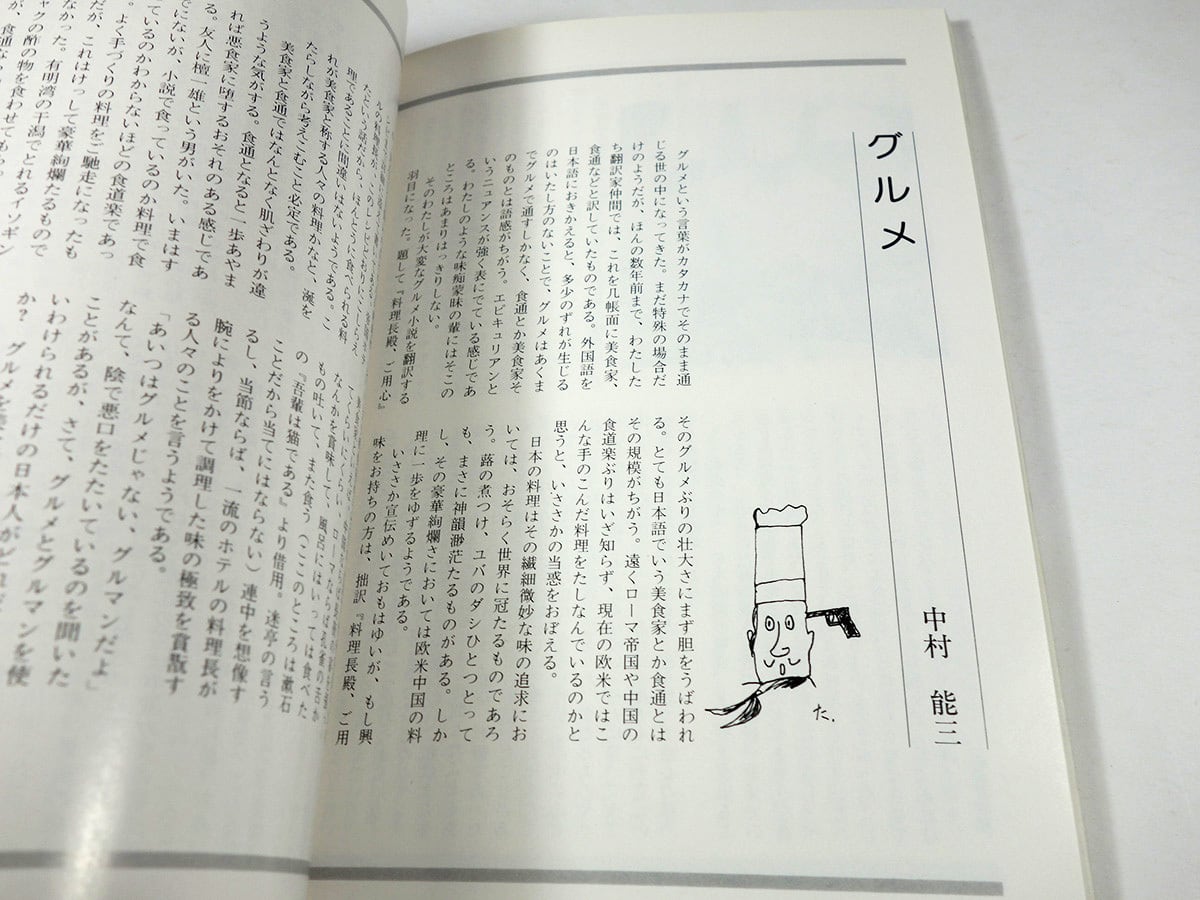 グルメ
中村 能三
グルメという言葉がカタカナでそのまま通
じる世の中になってきた。まだ特殊の場合だ
けのようだが、ほんの数年前まで、わたした
ち翻訳家仲間では、これを几帳面に美食家、
食通などと訳していたものである。外国語を
日本語におきかえると、多少のずれが生じる
のはいたし方のないことで、グルメはあくま
でグルメで通すしかなく、食通とか美食家そ
のものとは語感がちがう。エピキュリアンと
いうニュアンスが強く表にでている感じであ
る。わたしのような味痴蒙昧の輩にはそこの
ところはあまりはっきりしない。
そのわたしが大変なグルメ小説を翻訳する
羽目になった。題して『料理長殿、ご用心』
た.
そのグルメぶりの壮大さにまず胆をうばわれ
る。とても日本語でいう美食家とか食通とは
その規模がちがう。遠くローマ帝国や中国の
食道楽ぶりはいざ知らず、現在の欧米ではこ
んな手のこんだ料理をたしなんでいるのかと
思うと、いささかの当惑をおぼえる。
日本の料理はその繊細微妙な味の追求にお
いては、おそらく世界に冠たるものであろ
う。蕗の煮つけ、ユバのダシひとつとって
も、まさに神韻渺茫たるものがある。しか
し、その豪華絢爛さにおいては欧米中国の料
理に一歩をゆずるようである。
いささか宣伝めいておもはゆいが、もし興
味をお持ちの方は、拙訳『料理長殿、ご用
たという話だから、ほんとうに食べられる料
理であることに間違いはないようである。こ
れが美食家と称する人々の料理かなと、涎を
たらしながら考えこむこと必定である。
美食家と食通ではなんとなく肌ざわりが違
うような気がする。食通となると一歩あやま
れば悪食家に堕するおそれのある感じであ
る。友人に檀一雄という男がいた。いまはす
でにないが、小説で食っているのか料理で食
っているのかわからないほどの食道楽であっ
よく手づくりの料理をご馳走になったも
だが、これはけっして豪華絢爛たるもので
なかった。有明湾の干潟でとれるイソギン
ャクの酢の物を食わせてもら
なんかを賞味して、風呂にはいっては食べた
もの吐いて、また食う（ここのところは漱石
の『吾輩は猫である』より借用。迷亭の言う
ことだから当てにはならない）連中を想像す
るし、当節ならば、一流のホテルの料理長が
腕によりをかけて調理した味の極致を賞翫す
る人々のことを言うようである。
「あいつはグルメじゃない、グルマンだよ」
なんて、陰で悪口をたたいているのを聞いた
ことがあるが、さて、グルメとグルマンを使
いわけられるだけの日本人がどれだ
か？